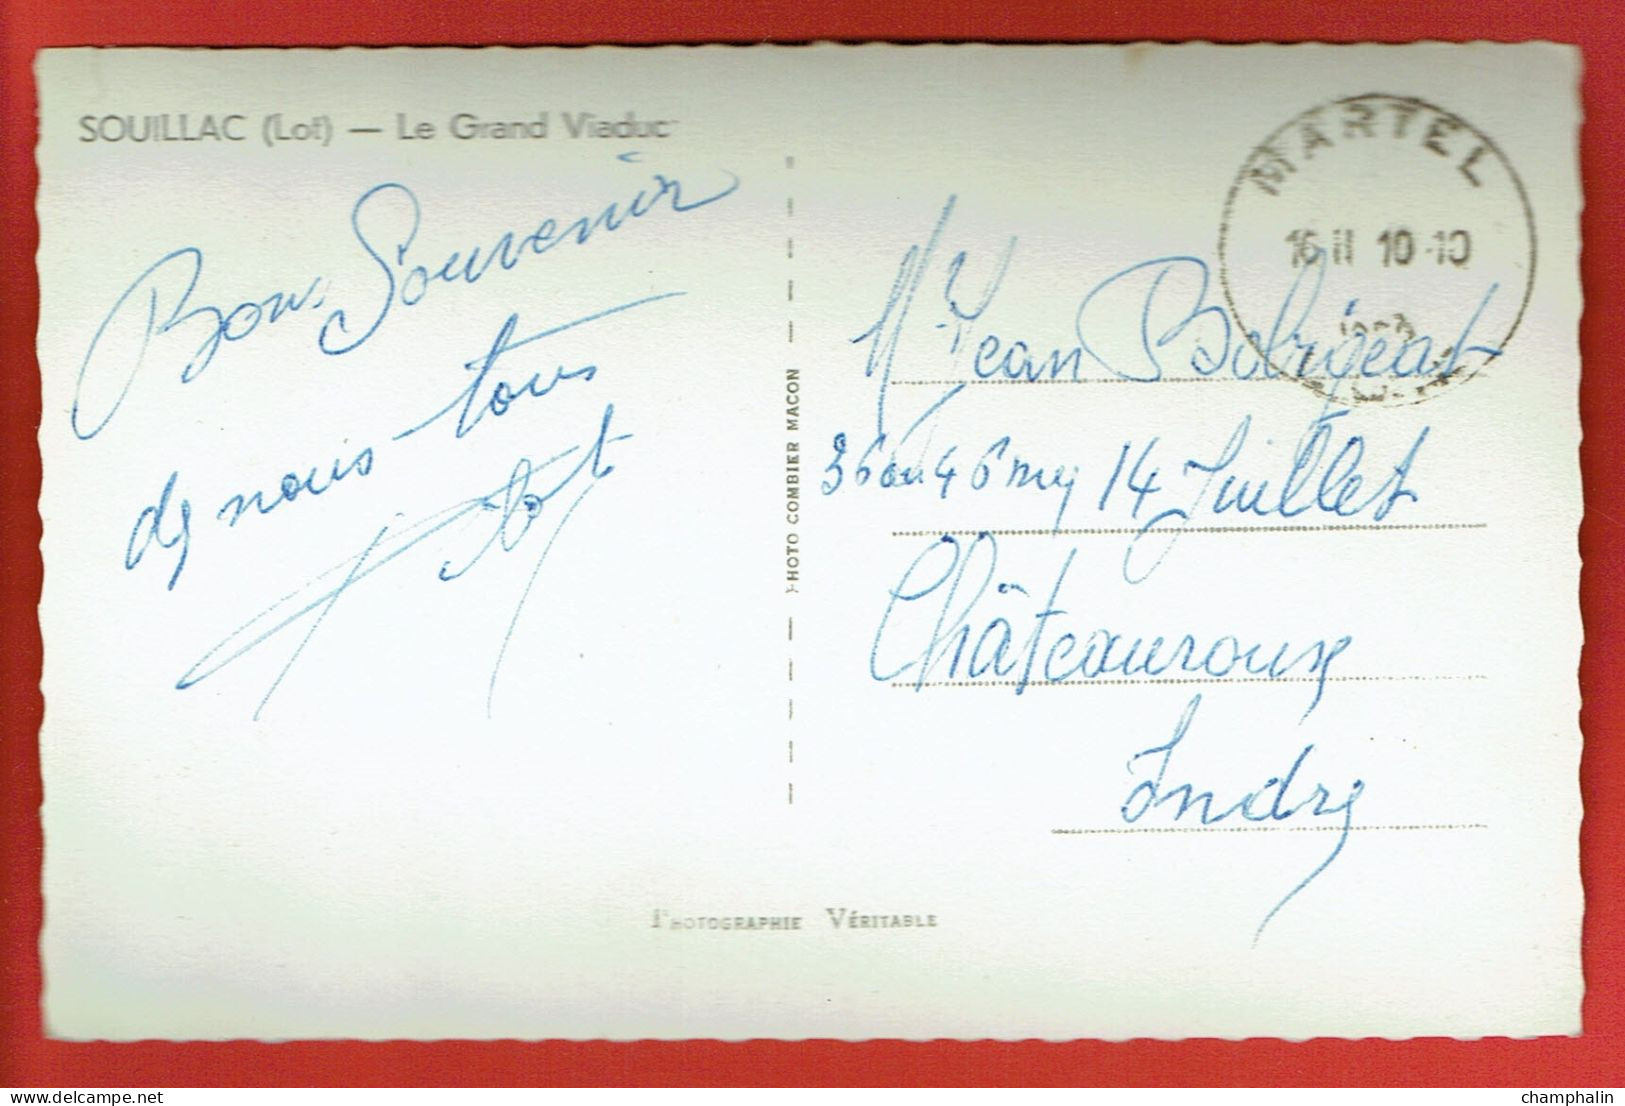 SOUILLAC (Lot) — Le Grand Viaduc
Bon Souvenir
de nous tous
PHOTO COMBIER MACON
MARTEL
16 II 10-10
Mr Jean
36 ou 46 14 Juillet
Châteauroux
Indre
PHOTOGRAPHIE VÉRITABLE
champhalin